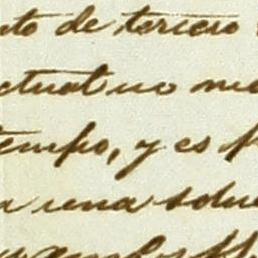 to de tercero
ctual no me
tempo, y es
a una solu